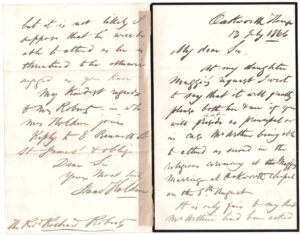 Oakworth House
13 July 1866
My dear Sir,
At my daughter
Maggie's request I write
to say that it will greatly
please both her & me if you
will preside as principal or
in case Mr Arthur being able
to attend as second in the
religious ceremony at the
Marriage at Oakworth Chapel
on the 8th August
It is only fair to say that
Mr Arthur had been asked
but it is not likely I
suppose that he will be
able to attend as he is
otherwise
engaged as you know
My kindest regards
to Mrs Roberts in wh
Mrs Holden joins
Reply to
St James's & oblige
Dear Sir
Yours most truly
Isaac Holden
The Revd Richard Roberts